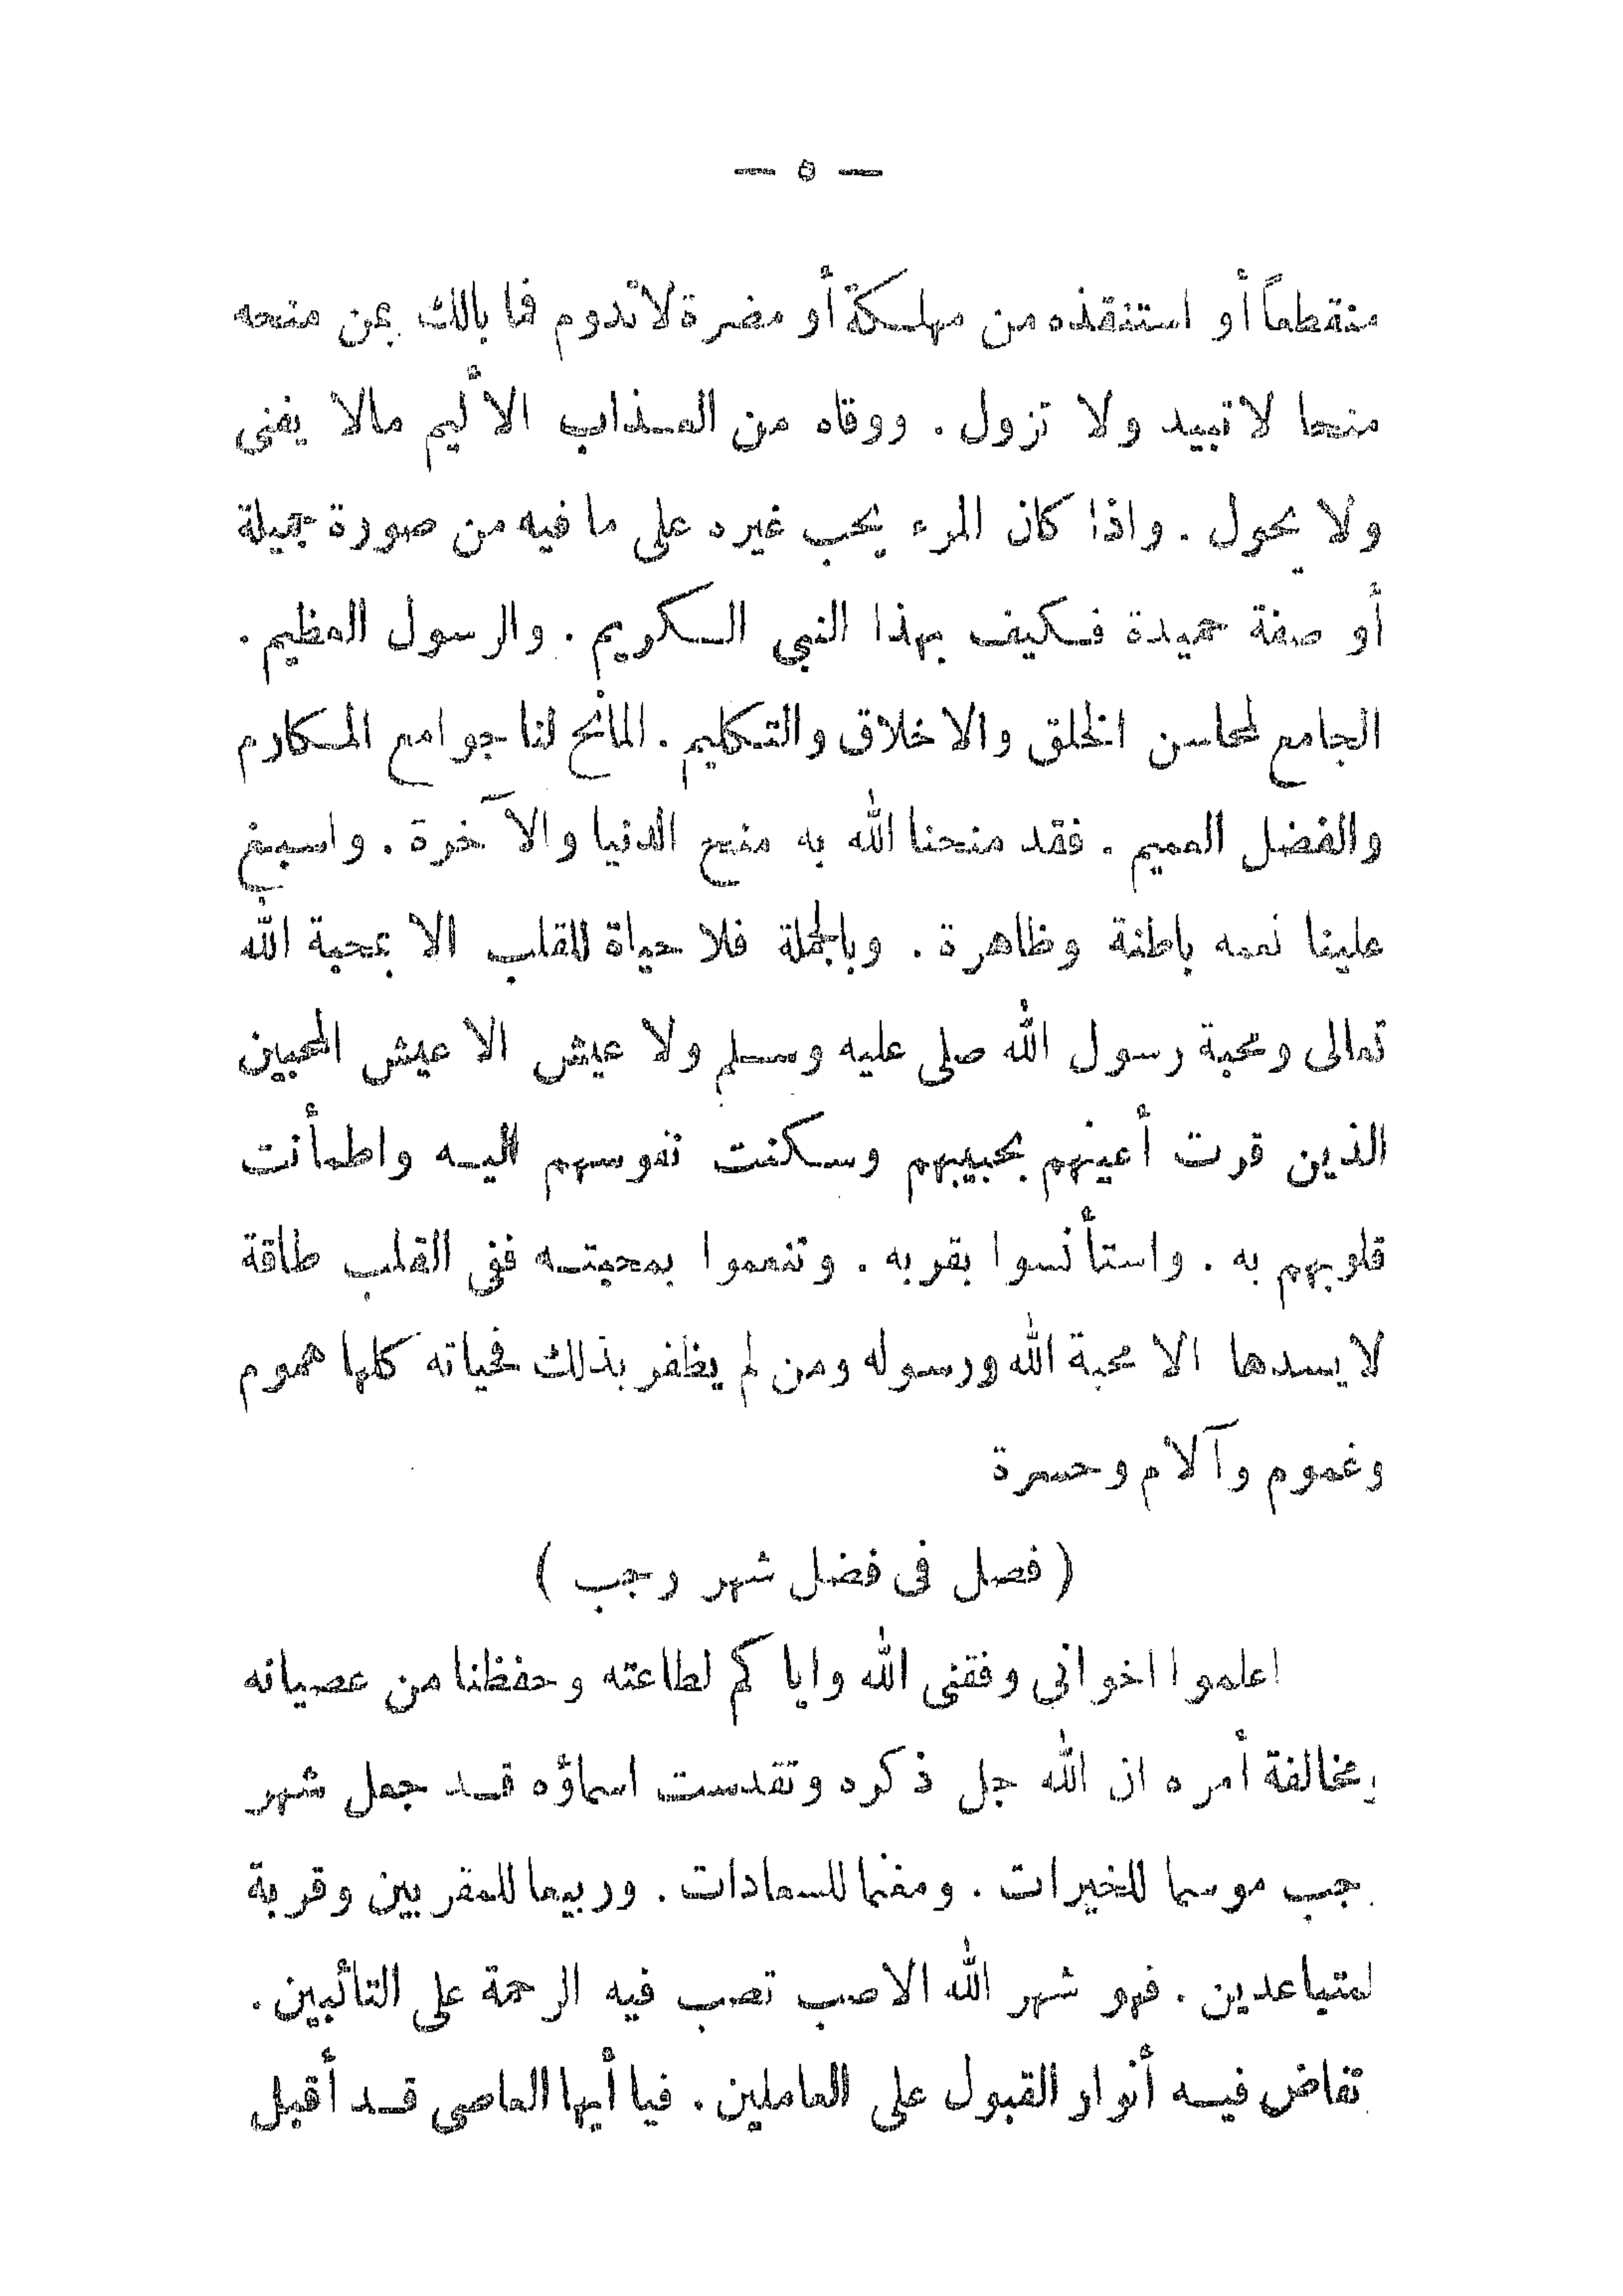 — ٥ —
منقطعاً أو استنقذه من مهلكة أو مضرة لا تدوم فما بالك بمن منحه
منحا لا تبيد ولا تزول . ووقاه من العذاب الأليم مالا يفنى
ولا يحول . واذا كان المرء يحب غيره على ما فيه من صورة جميلة
أو صفة حميدة فكيف بهذا النبي الكريم . والرسول العظيم .
الجامع لمحاسن الخلق والاخلاق والتكليم . المانح لنا جوامع المكارم
والفضل العميم . فقد منحنا الله به منح الدنيا والآخرة . واسبغ
علينا نعمه باطنة وظاهرة . وبالجملة فلا حياة للقلب الا بمحبة الله
تعالى ومحبة رسول الله صلى عليه وسلم ولا عيش الا عيش المحبين
الذين قرت أعينهم بحبيبهم وسكنت نفوسهم اليه واطمأنت
قلوبهم به . واستأنسوا بقربه . وتنعموا بمحبته ففي القلب طاقة
لا يسدها الا محبة الله ورسوله ومن لم يظفر بذلك فحياته كلها هموم
وغموم وآلام وحسرة
( فصل فى فضل شهر رجب )
اعلموا اخواني وفقنى الله واياكم لطاعته وحفظنا من عصيانه
ومخالفة أمره ان الله جل ذكره وتقدست اسماؤه قد جعل شهر
رجب موسما للخيرات . ومغنما للسعادات . وربيعا للمقربين وقربة
لمتباعدين . فهو شهر الله الاصب تصب فيه الرحمة على التائبين .
تفاض فيه أنوار القبول على العاملين . فيا أيها العاصى قد أقبل